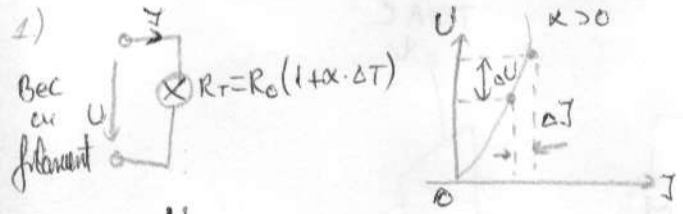 1)
I
Bec
cu
filament
U
R_T=R_0(1+α·ΔT)
U
α>0
ΔU
ΔI
0
I